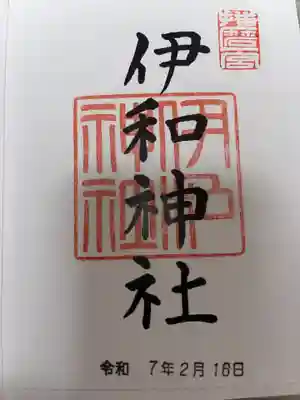 伊和神社
伊和
神社
令和 7年2月16日